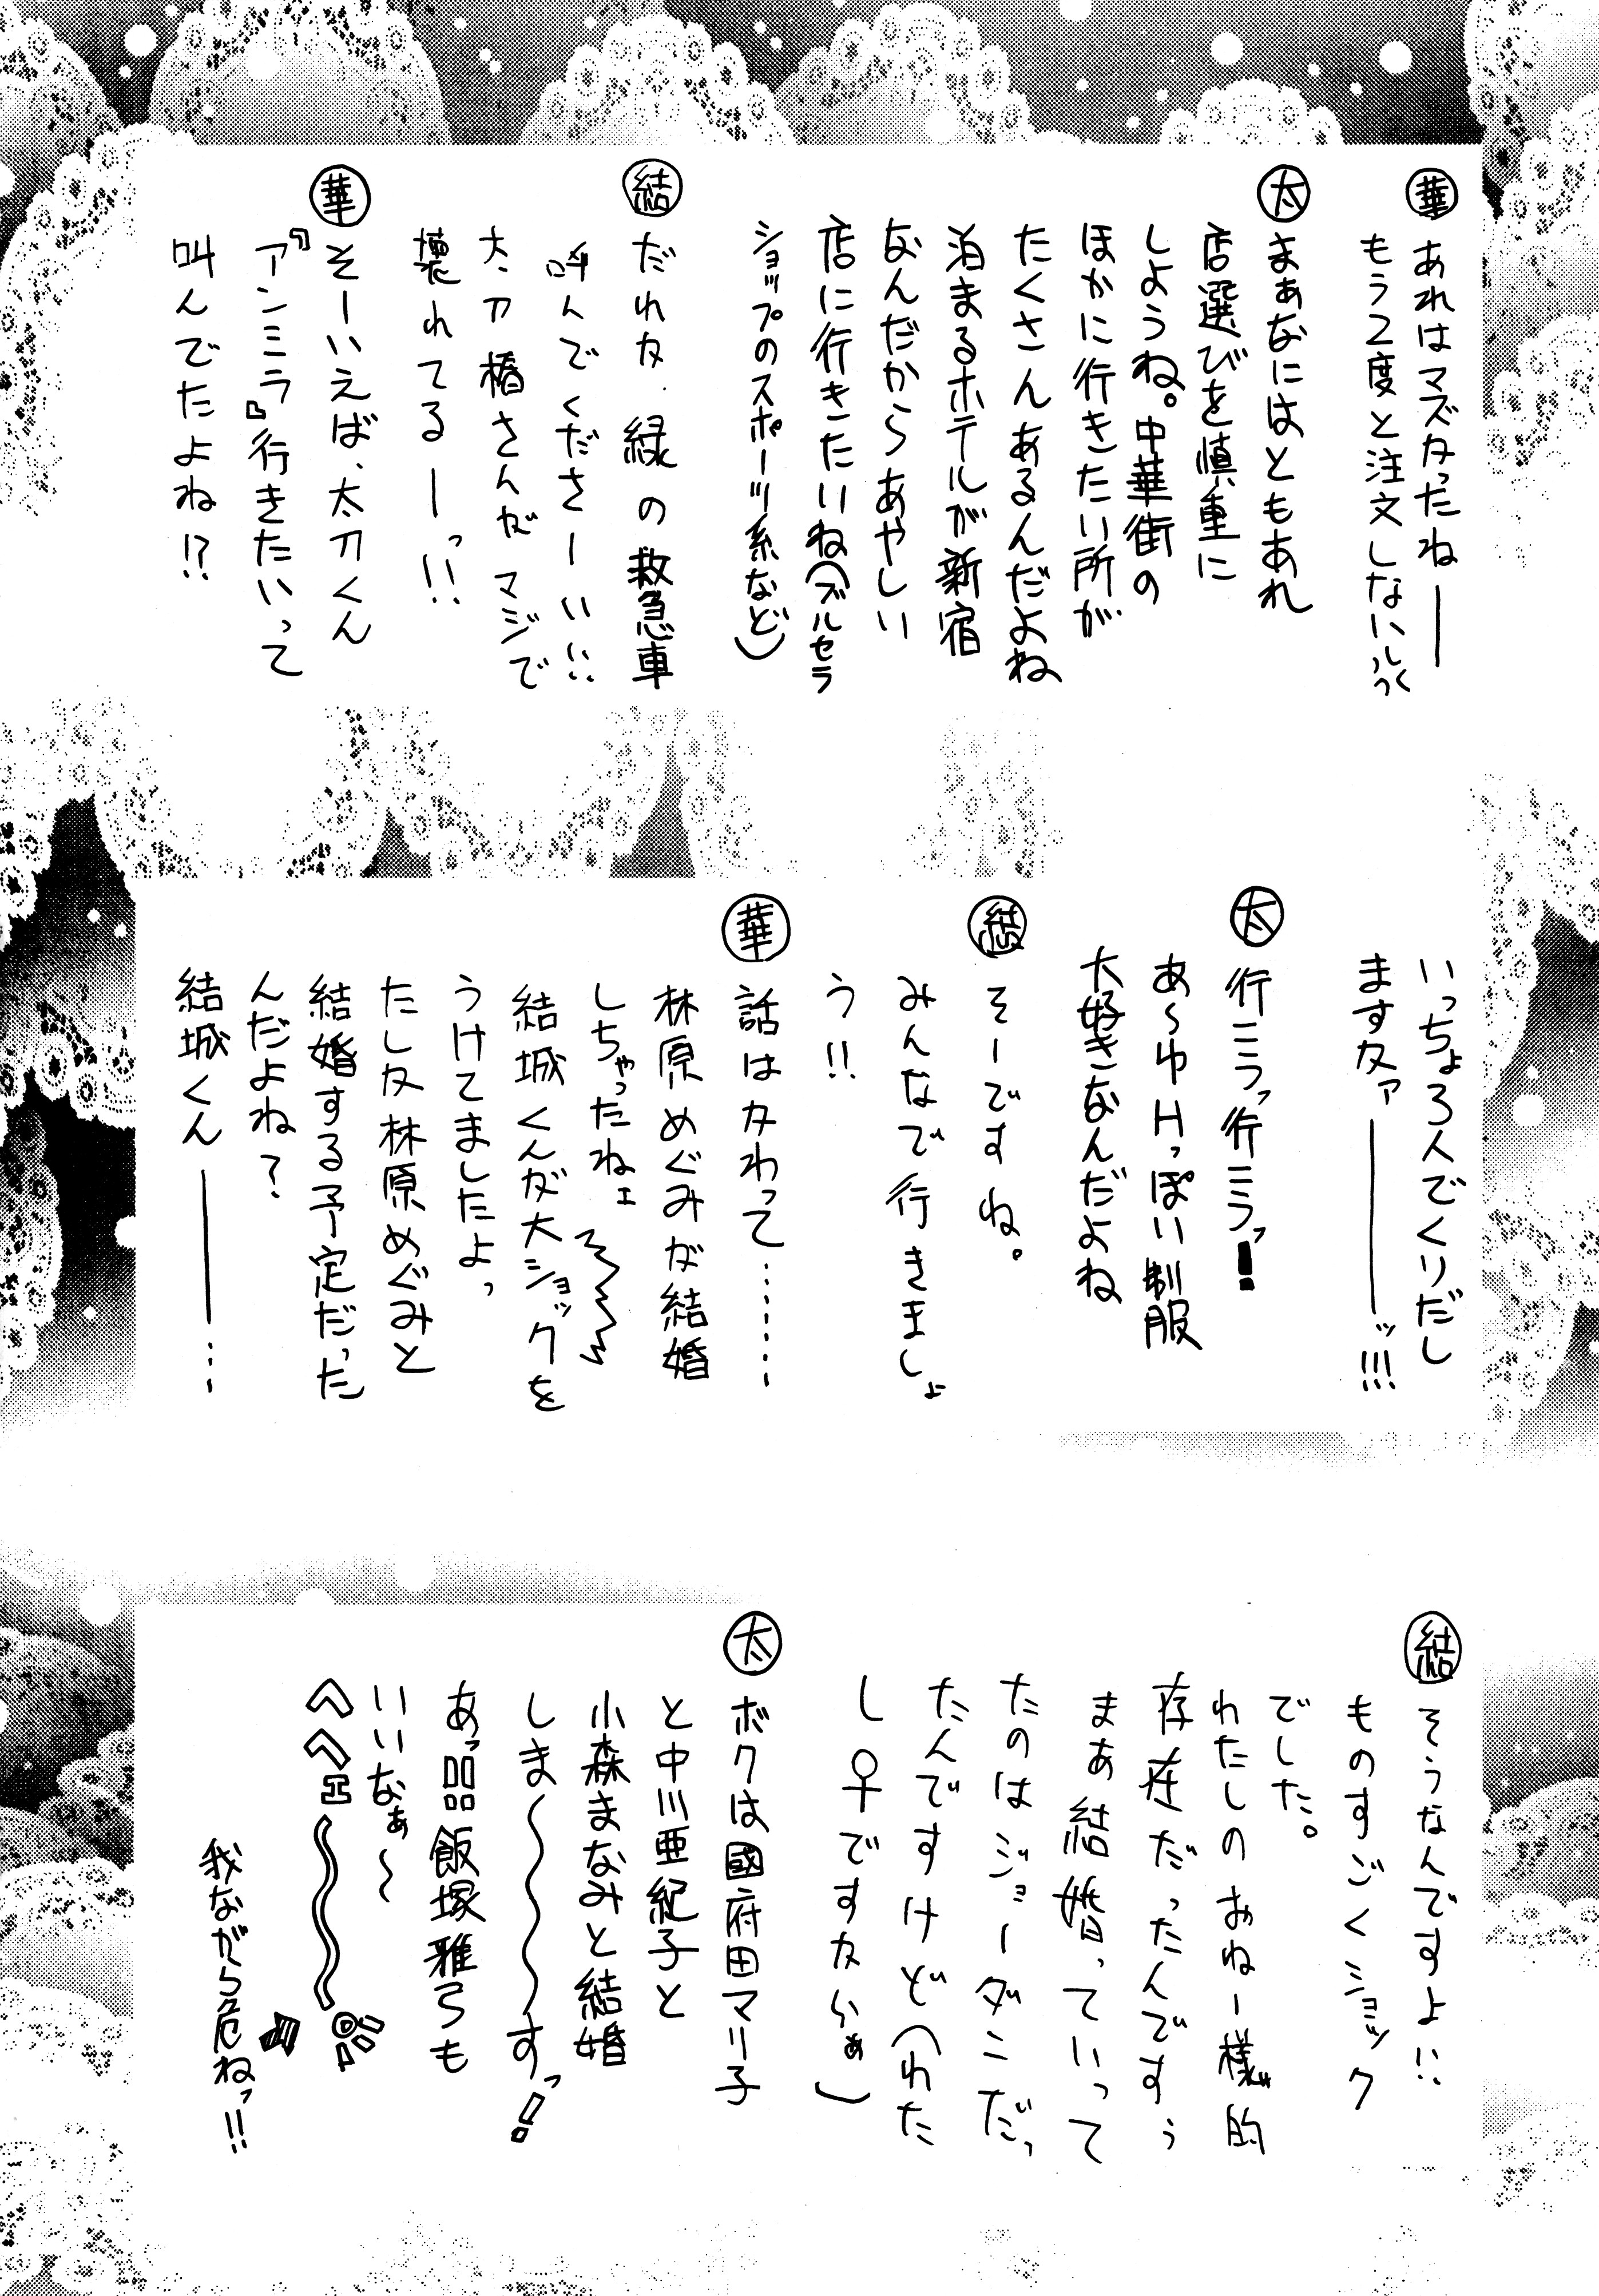 華 あれはマズカったねー
もう2度と注文しないっ
太 まぁなにはともあれ
店選びを慎重に
しようね。中華街の
ほかに行きたい所が
たくさんあるんだよね
泊まるホテルが新宿
なんだからあやしい
店に行きたいね(ブルセラ
ショップのスポーツ系など)
結 だれカ、緑の救急車
呼んでくださーいい!!
太刀橋さんが マジで
壊れてるーっ!!
華 そーいえば、太刀くん
『アンミラ』行きたいって
叫んでたよね!?
いっちょ3人でくりだし
ますカァーーッ!!!
太 行こうっ行こうっ!
あ〜ゆHっぽい制服
大好きなんだよね
結 そーですね。
みんなで行きましょ
う!!
華 話はカわって………
林原めぐみが結婚
しちゃったねェ
結城くんが大ショックを
うけてましたよっ
たしカ林原めぐみと
結婚する予定だった
んだよね?
結城くんー…
結 そうなんですよ!!
ものすごくショック
でした。
わたしのおねー様的
存在だったんですぅ
まぁ結婚っていって
たのはジョーダンだっ
たんですけど(わた
し♀ですカらぁ)
太 ボクは國府田マリ子
と中川亜紀子と
小森まなみと結婚
しま〜〜すっ!
あっ!!飯塚雅弓も
いいなぁ〜
へへェ〜
我ながら危ねっ!!